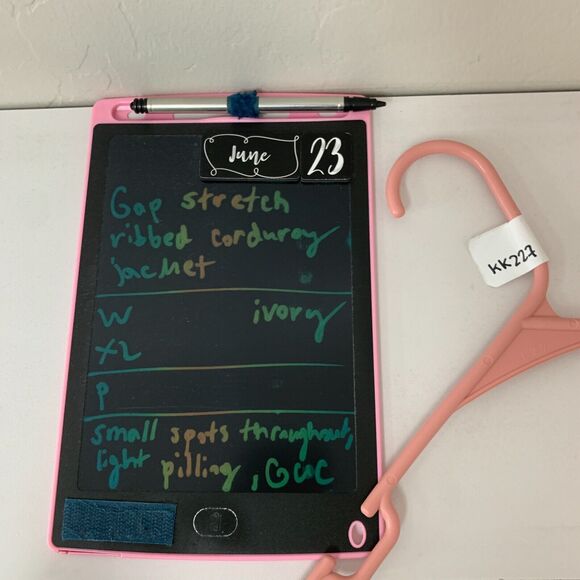 June 23
Gap stretch
ribbed corduroy
jacket
W ivory
XL
P
small spots throughout,
light pilling, GUC
KK227